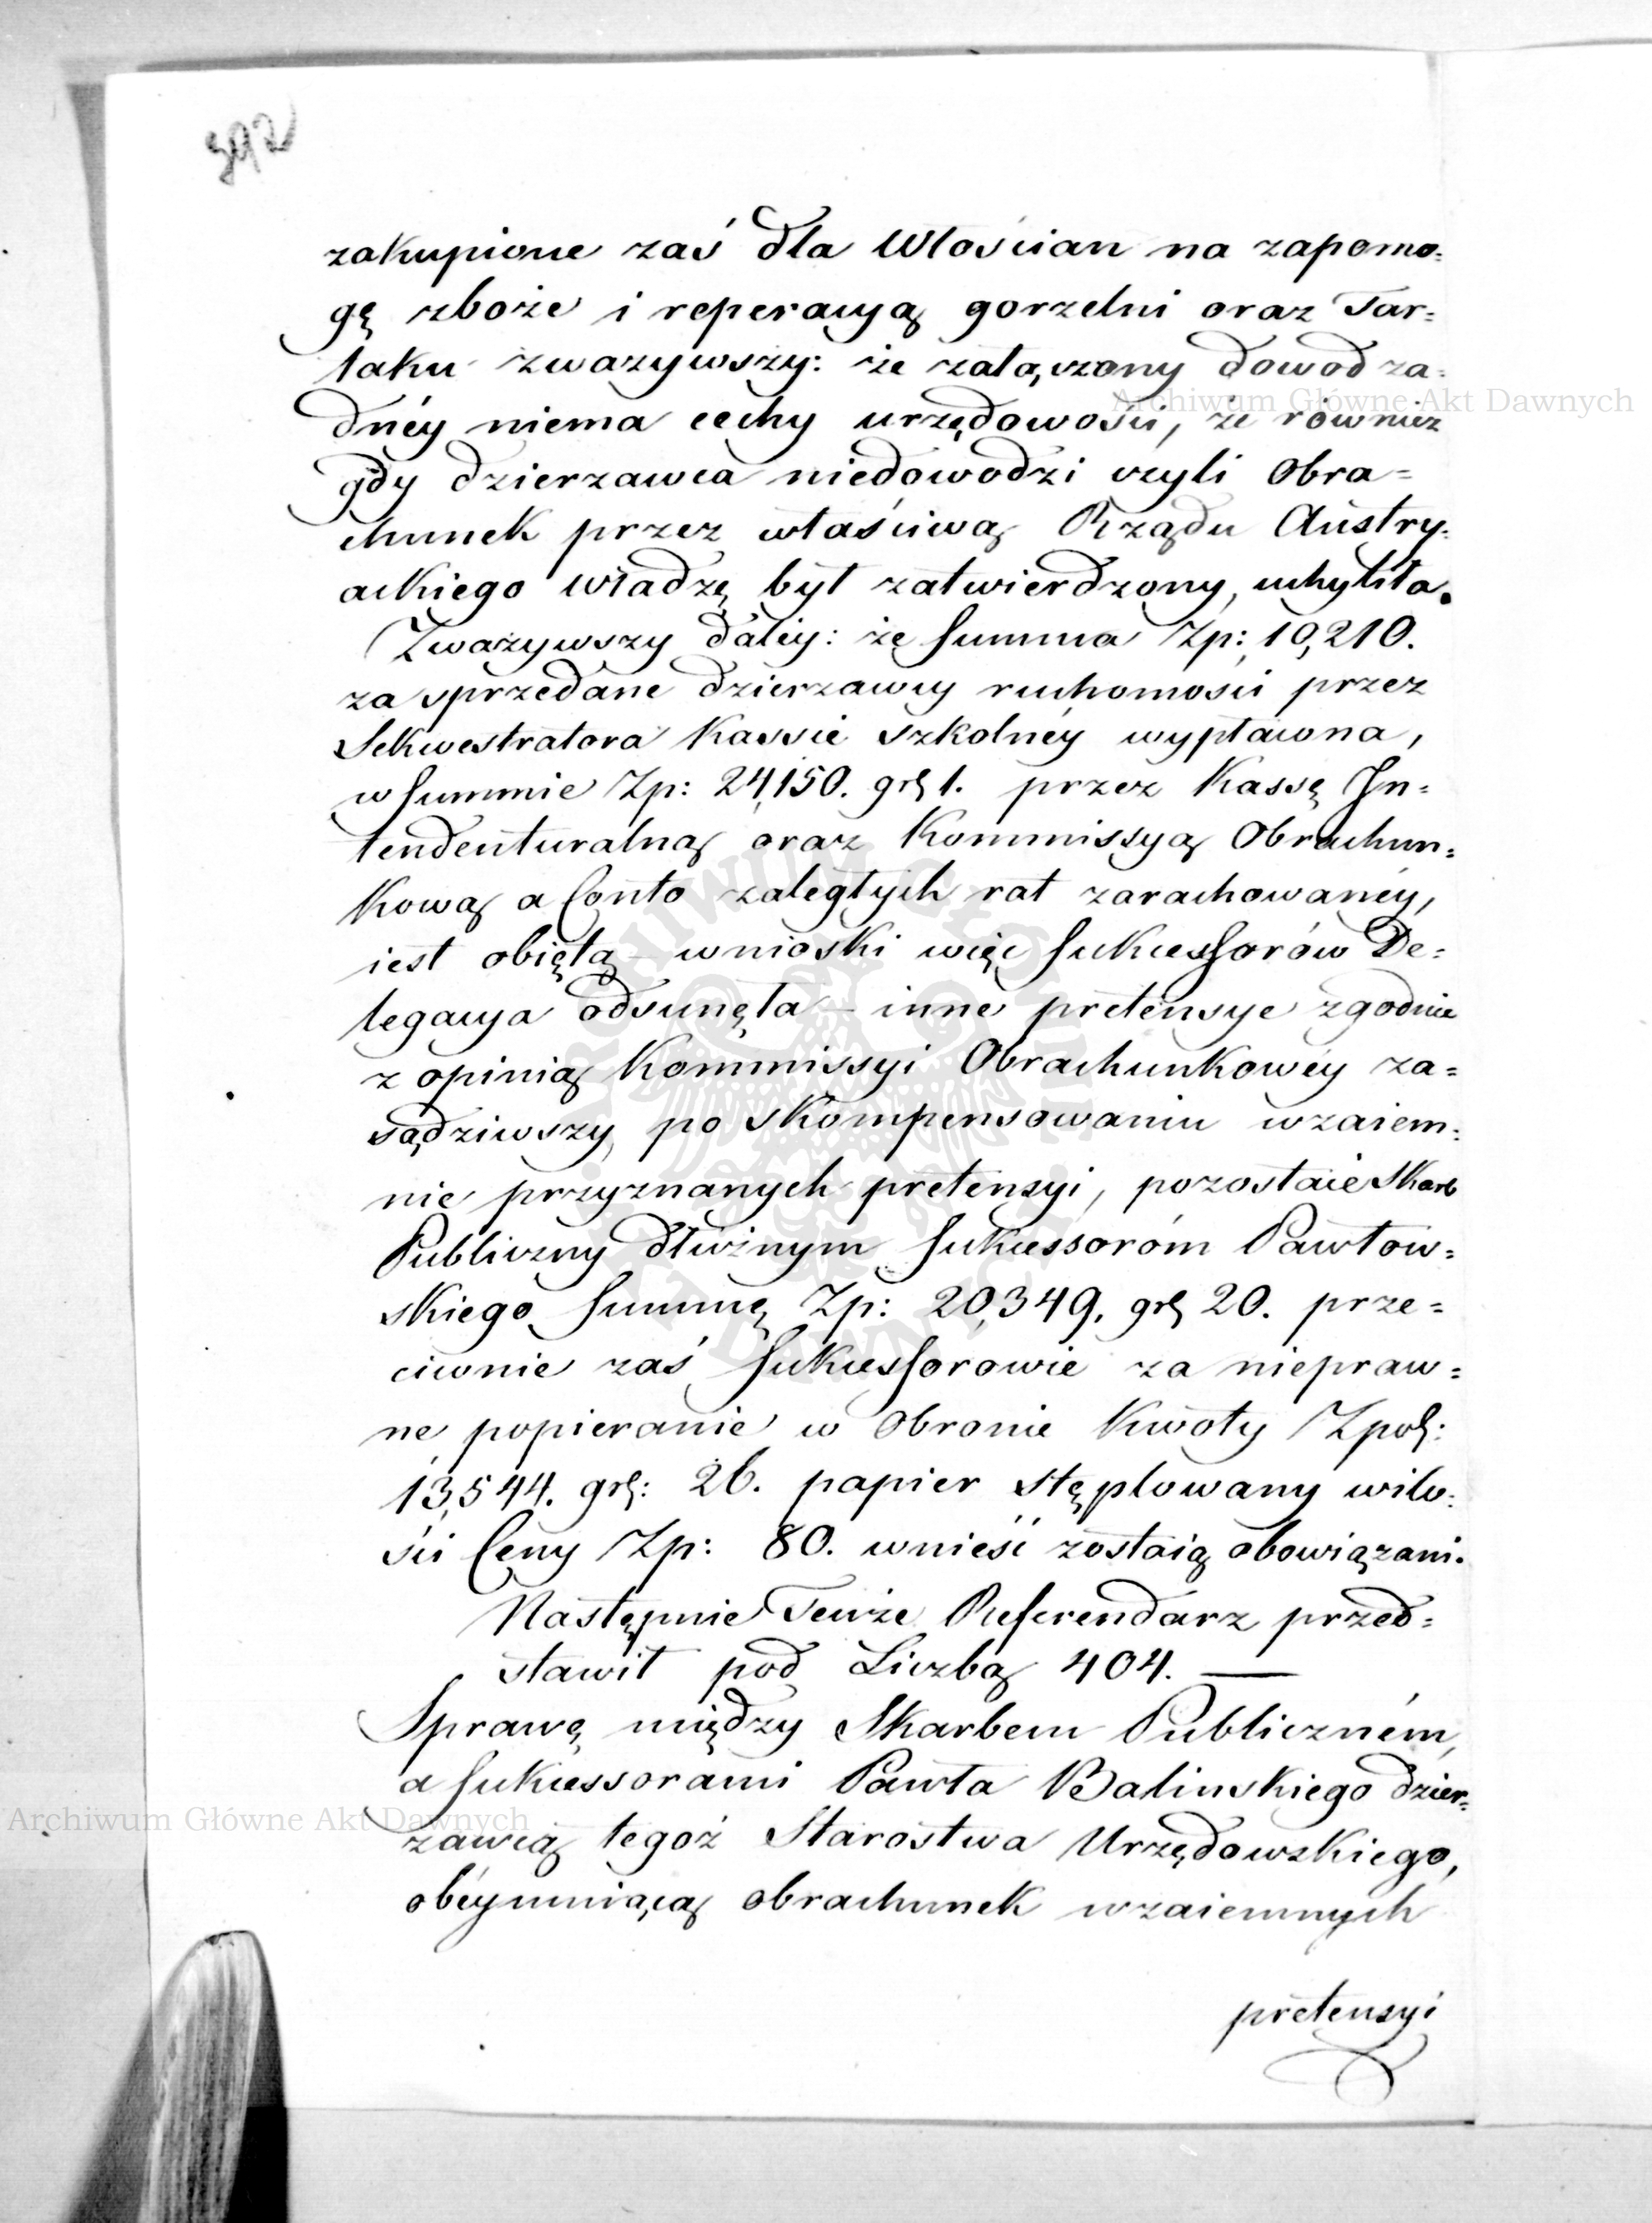 392
zakupione zaś dla Włościan na zapomo=
gę zboże i reperacyą gorzelni oraz Tar=
taku zwazywszy: że załączony dowod za=
dnéy niema cechy urzędowości, że również
gdy dzierzawca niedowodzi czyli Obra=
chunek przez właściwą Rządu Austry=
ackiego Władzę był zatwierdzony, uchyliła.
Zwazywszy daléy: że Summa Zp: 10,210.
za sprzedane dzierzawcy ruchomości przez
Sekwestratora Kassie szkolnéy wypłacona,
w Summie Zp: 24,150. gr 1. przez Kassę In=
tendenturalną oraz Kommissyą Obrachun=
kową a Conto zaległych rat zarachowanéy,
iest obiętą – wnioski więc Sukcessorów De=
legacya odsunęła – inne pretensye zgodnie
z opinią Kommissyi Obrachunkowéy za=
sądziwszy, po skompensowaniu wzaiem=
nie przyznanych pretensyi, pozostaie Skarb
Publiczny dłużnym Sukcessoróm Pawłow=
skiego Summę Zp: 20,349. gr 20. prze=
ciwnie zaś Sukcessorowie za niepraw=
ne popieranie w Obronie Kwoty Zpol:
13,544. gr: 26. papier stęplowany wilo=
ści Ceny Zp: 80. wnieść zostaią obowiązani.
Następnie Tenże Referendarz przed=
stawił pod Liczbą 404. —
Sprawę między Skarbem Publiczném,
a Sukcessorami Pawła Balinskiego dzier=
zawcą tegoż Starostwa Urzędowskiego,
obéymuiącą obrachunek wzaiemnych
pretensyi
Archiwum Główne Akt Dawnych
Archiwum Główne Akt Dawnych